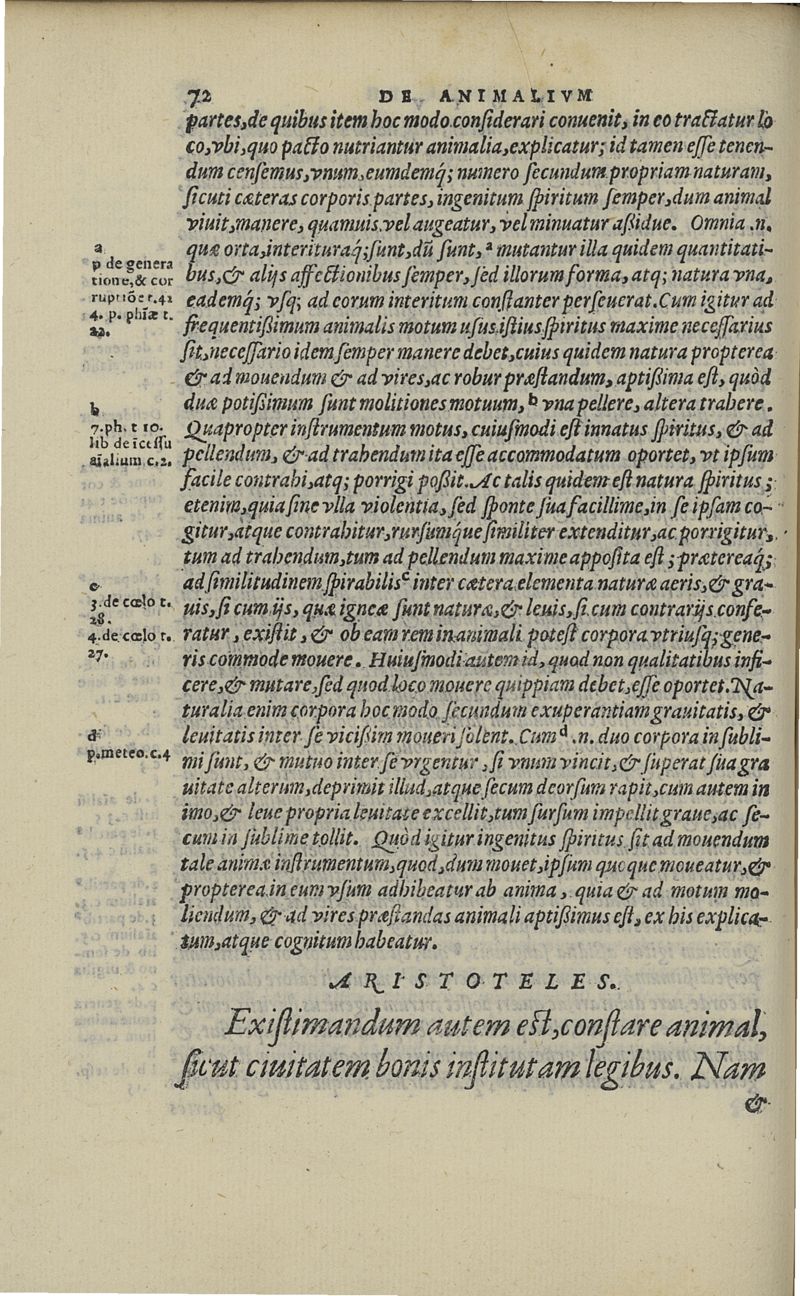 72 DE ANIMALIVM
partes,de quibus item hoc modo considerari conuenit, in eo tractatur lo
co,vbi,quo pacto nutriantur animalia,explicatur; id tamen esse tenen-
dum censemus,vnum,eumdemq́; numero secundum propriam naturam,
sicuti cæteras corporis partes, ingenitum spiritum semper,dum animal
viuit,manere, quamuis vel augeatur, vel minuatur aßidue. Omnia .n.
quæ orta,interituraq́;sunt,dū sunt, a mutantur illa quidem quantitati-
bus,& alijs affectionibus semper,sed illorum forma, atq; natura vna,
eademq́; vsq; ad eorum interitum constanter perseuerat.Cum igitur ad
frequentißimum animalis motum usus istius spiritus maxime necessarius
sit,necessario idem semper manere debet,cuius quidem natura propterea
& ad mouendum & ad vires,ac robur præstandum, aptißima est, quòd
duæ potißimum sunt molitiones motuum, b vna pellere, altera trahere.
Quapropter instrumentum motus, cuiusmodi est innatus spiritus, & ad
pellendum, & ad trahendum ita esse accommodatum oportet, vt ipsum
facile contrahi,atq; porrigi poßit.Ac talis quidem est natura spiritus;
etenim,quia sine vlla violentia, sed sponte sua facillime,in se ipsam co-
gitur,atque contrahitur,rursumq́ue similiter extenditur,ac porrigitur,
tum ad trahendum,tum ad pellendum maxime apposita est; prætereaq́;
ad similitudinem spirabilis c inter cætera elementa naturæ aeris,& gra-
uis,si cum ijs, quæ igneæ sunt naturæ,& leuis,si cum contrarijs confe-
ratur, existit, & ob eam rem in animali potest corpora vtriusq; gene-
ris commode mouere. Huiusmodi autem id, quod non qualitatibus infi-
cere,& mutare,sed quod loco mouere quippiam debet,esse oportet.Na-
turalia enim corpora hoc modo secundum exuperantiam grauitatis, &
leuitatis inter se vicißim moueri solent. Cum d .n. duo corpora in subli-
mi sunt, & mutuo inter se vrgentur, si vnum vincit,& superat sua gra
uitate alterum,deprimit illud,atque secum deorsum rapit,cum autem in
imo,& leue propria leuitate excellit,tum sursum impellit graue,ac se-
cum in sublime tollit. Quòd igitur ingenitus spiritus sit ad mouendum
tale animæ instrumentum,quod,dum mouet,ipsum quoque moueatur,&
propterea in eum vsum adhibeatur ab anima, quia & ad motum mo-
liendum, & ad vires præstandas animali aptißimus est, ex his explica-
tum,atque cognitum habeatur.
a
p de genera
tione,& cor
ruptiōe t.42
4. p. phīæ t.
22.
b
7.ph. t 10.
lib de īcessu
aīalium c.2.
c
3.de cœlo t.
28.
4.de cœlo t.
27.
d
p.meteo.c.4
ARISTOTELES.
Existimandum autem est,constare animal,
sicut ciuitatem bonis institutam legibus. Nam
&